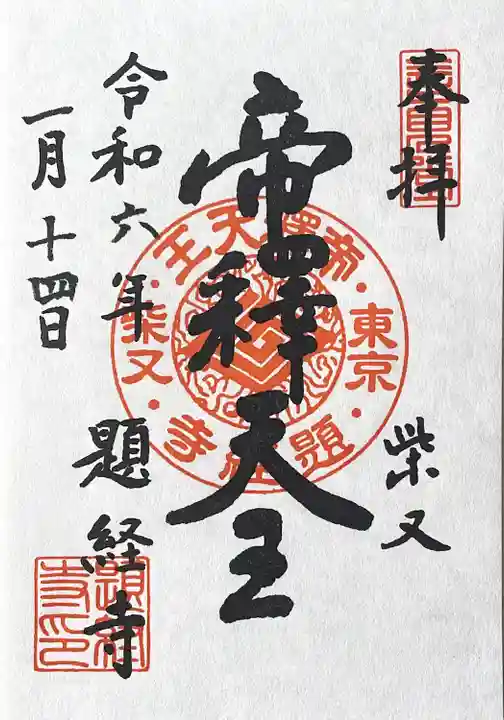 奉拝
柴又
帝釋天王
令和六年
一月十四日
題経寺
帝釋天王
東京
柴又
題経寺